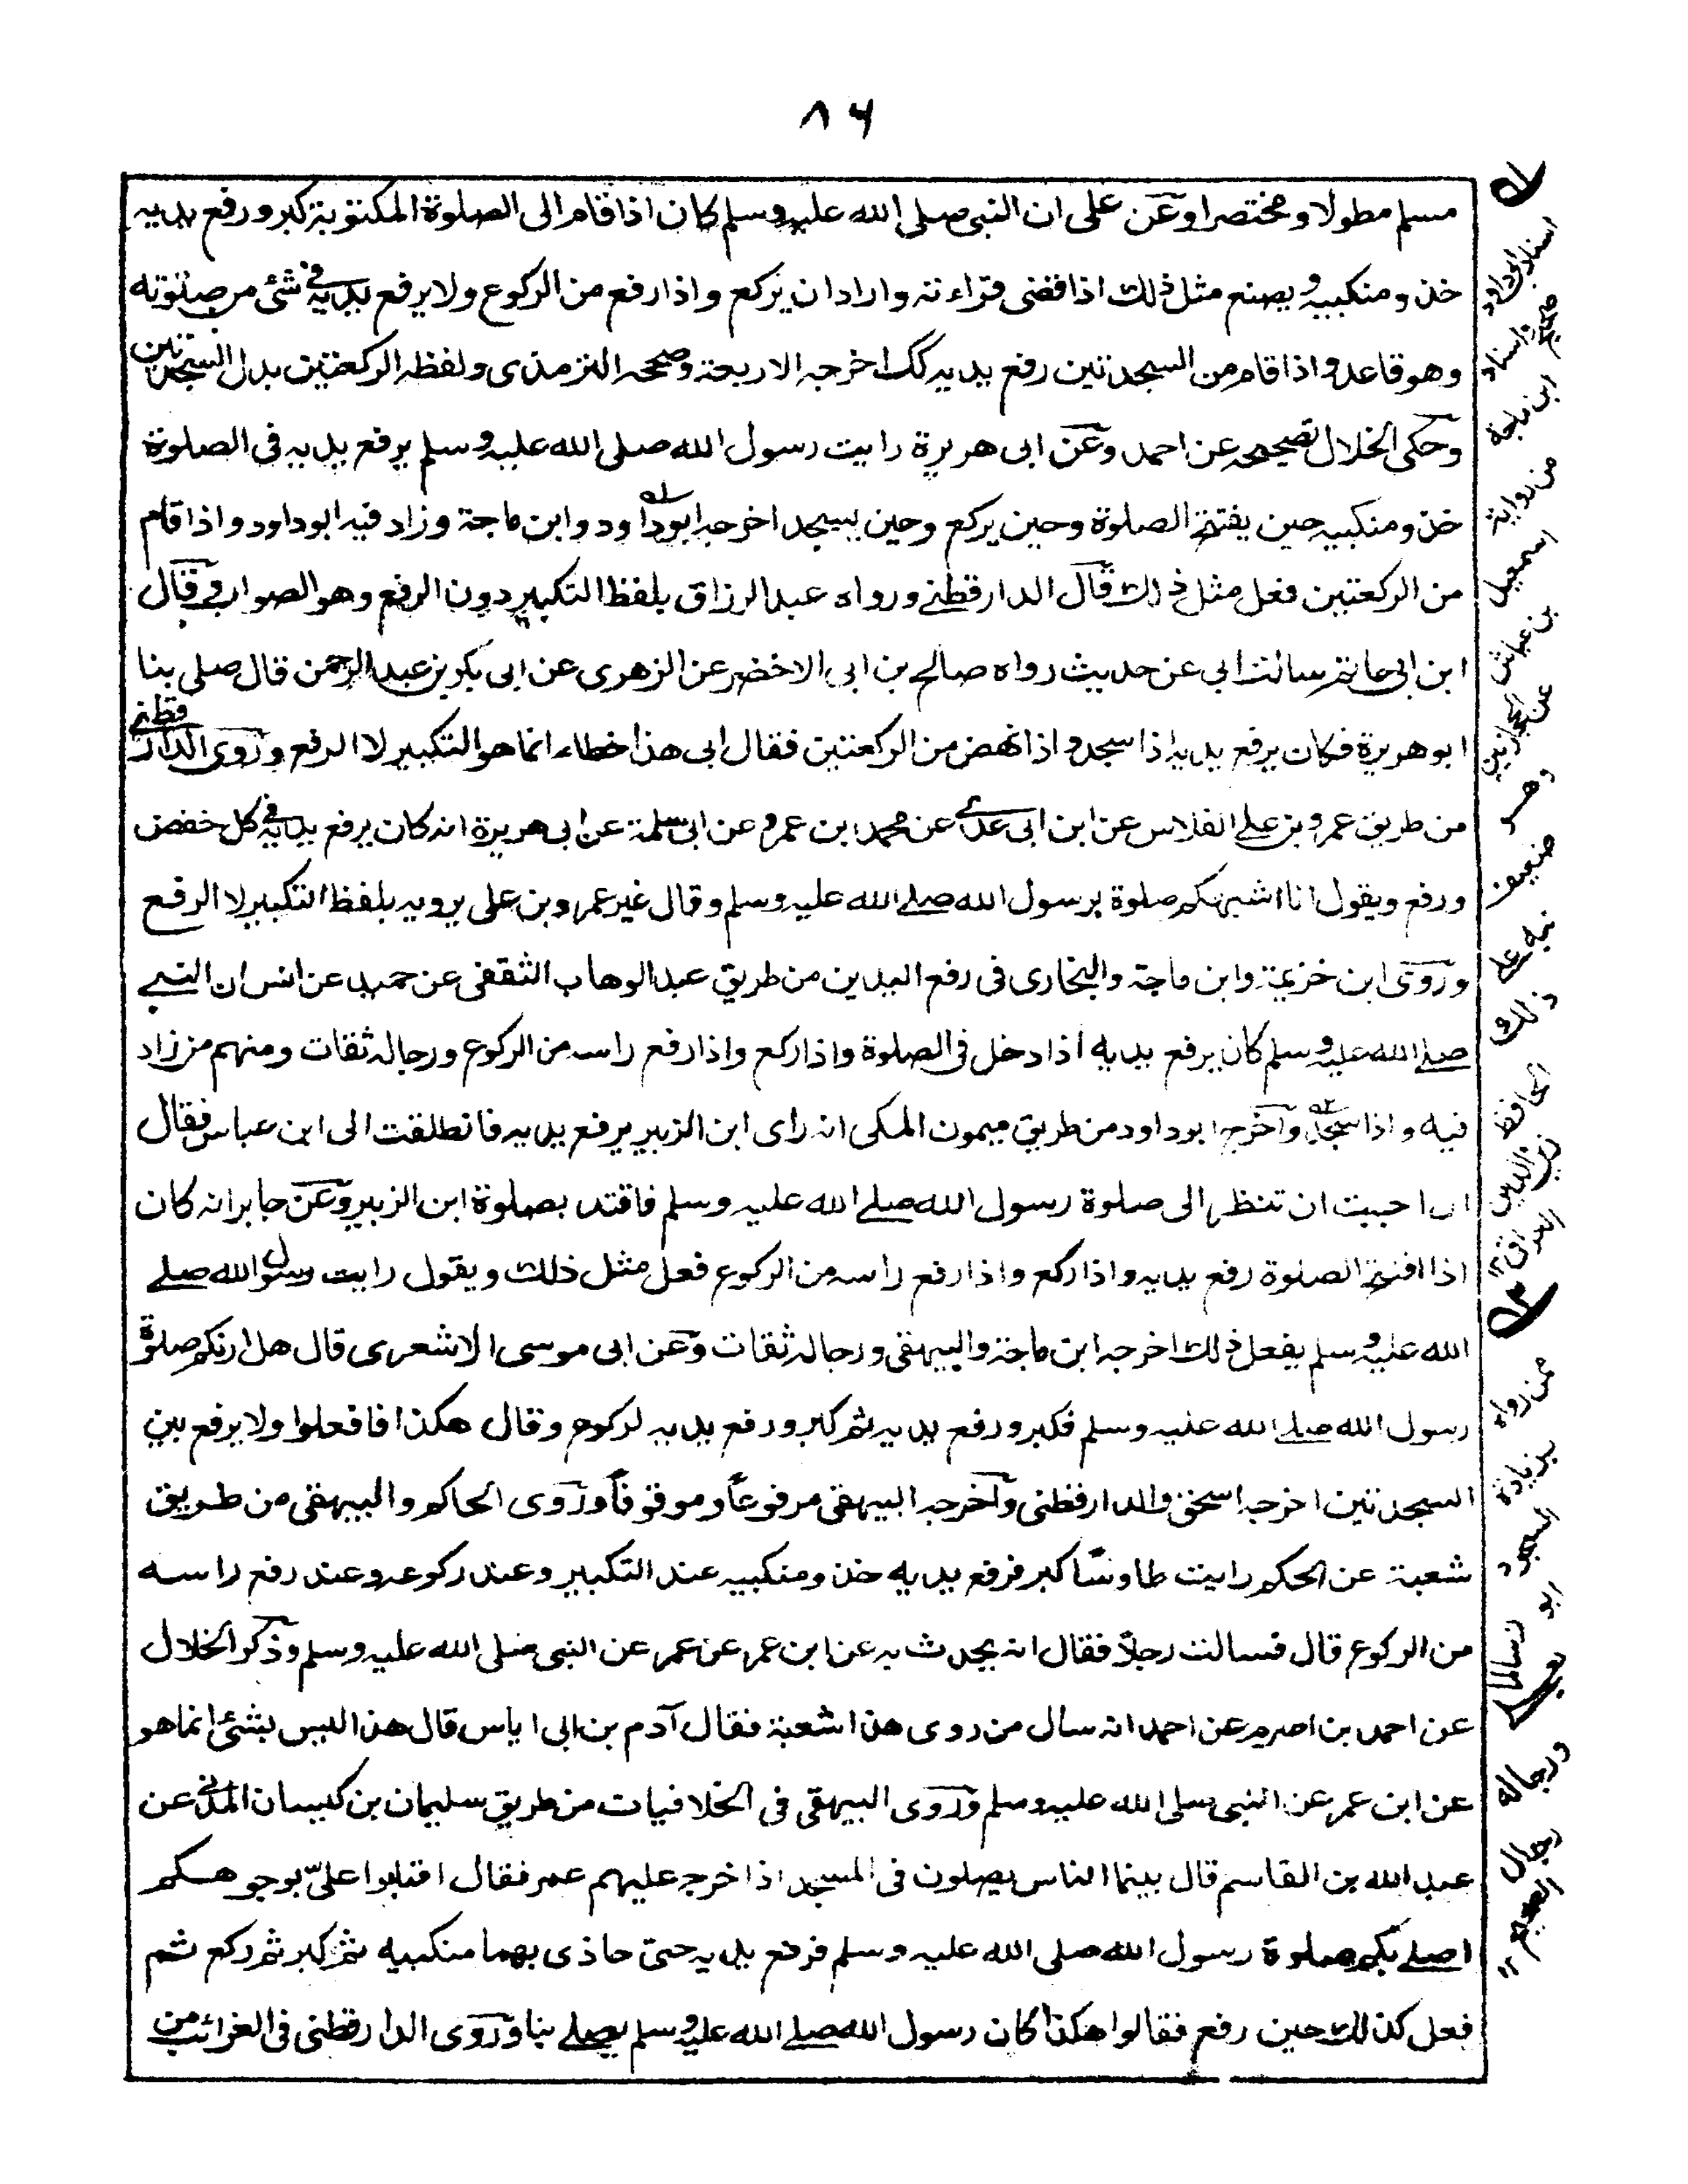 ٨٦
مسلم مطولا ومختصرا وعن على ان النبى صلى الله عليه وسلم كان اذا قام الى الصلوة المكتوبة كبر ورفع يديه
حذو منكبيه ويصنع مثل ذلك اذا قضى قراءته واراد ان يركع واذا رفع من الركوع ولا يرفع يديه فى شئ من صلوته
وهو قاعد واذا قام من السجدتين رفع يديه كك اخرجه الاربعة وصححه الترمذى ولفظه الركعتين بدل السجدتين
وحكى الخلال تصحيحه عن احمد وعن ابى هريرة رايت رسول الله صلى الله عليه وسلم يرفع يديه فى الصلوة
حذو منكبيه حين يفتتح الصلوة وحين يركع وحين يسجد اخرجه ابو داود وابن ماجة وزاد فيه ابو داود واذا قام
من الركعتين فعل مثل ذلك قال الدارقطنے ورواه عبد الرزاق بلفظ التكبير دون الرفع وهو الصواب وقال
ابن ابى حاتم سالت ابى عن حديث رواه صالح بن ابى الاخضر عن الزهرى عن ابى بكر بن عبد الرحمن قال صلى بنا
ابو هريرة فكان يرفع يديه اذا سجد واذا نهض من الركعتين فقال ابى هذا خطاء انما هو التكبير لا الرفع وروى الدارقطنے
من طريق عمرو بن علے الفلاس عن ابن ابى عدے عن محمد ابن عمرو عن ابى سلمة عن ابى هريرة انه كان يرفع يديه فى كل خفض
ورفع ويقول انا اشبهكم صلوة برسول الله صلے الله عليه وسلم وقال غير عمرو بن على يرويه بلفظ التكبير لا الرفع
وروى ابن خزيمة وابن ماجة والبخارى فى رفع اليدين من طريق عبد الوهاب الثقفى عن حميد عن انس ان النبے
صلے الله عليه وسلم كان يرفع يديه اذا دخل فى الصلوة واذا ركع واذا رفع راسه من الركوع ورجاله ثقات ومنهم من زاد
فيه واذا سجد واخرج ابو داود من طريق ميمون المكى انه راى ابن الزبير يرفع يديه فانطلقت الى ابن عباس فقال
ان احببت ان تنظر الى صلوة رسول الله صلے الله عليه وسلم فاقتد بصلوة ابن الزبير وعن جابر انه كان
اذا افتتح الصلوة رفع يديه واذا ركع واذا رفع راسه من الركوع فعل مثل ذلك ويقول رايت رسول الله صلے
الله عليه وسلم يفعل ذلك اخرجه ابن ماجة والبيهقى ورجاله ثقات وعن ابى موسى الاشعرى قال هل اريكم صلوة
رسول الله صلے الله عليه وسلم فكبر ورفع يديه ثم كبر ورفع يديه لركوع وقال هكذا فافعلوا ولا يرفع بين
السجدتين اخرجه اسحق والدارقطنى واخرجه البيهقى مرفوعاً وموقوفاً وروى الحاكم والبيهقى من طريق
شعبة عن الحكم رايت طاوسًا كبر فرفع يديه حذو منكبيه عند التكبير وعند ركوعه وعند رفع راسه
من الركوع قال فسالت رجلاً فقال انه يحدث به عن ابن عمر عن عمر عن النبى صلى الله عليه وسلم وذكر الخلال
عن احمد بن اصرم عن احمد انه سال من روى هذا شعبة فقال آدم بن ابى اياس قال هذا ليس بشئ انما هو
عن ابن عمر عن النبى صلى الله عليه وسلم وروى البيهقى فى الخلافيات من طريق سليمان بن كيسان المدنى عن
عبد الله بن القاسم قال بينما الناس يصلون فى المسجد اذا خرج عليهم عمر فقال اقبلوا علىّ بوجوهكم
اصلے بكم صلوة رسول الله صلى الله عليه وسلم فرفع يديه حتى حاذى بهما منكبيه ثم كبر ثم ركع ثم
فعل كذلك حين رفع فقالوا هكذا كان رسول الله صلے الله عليه وسلم يصلے بنا وروى الدارقطنى فى الغرائب من
اسناد ابى داود
صحيح واسناد
ابن ماجة
من رواية
اسمعيل
بن عياش
عن الحجازيين
وهو
ضعيف
نبه على
ذلك
الحافظ
زين الدين
العراقى ١٢
ممن رواه
بزيادة
السجود
ابو
يعلى
ورجاله
رجال
الصحيح ١٢